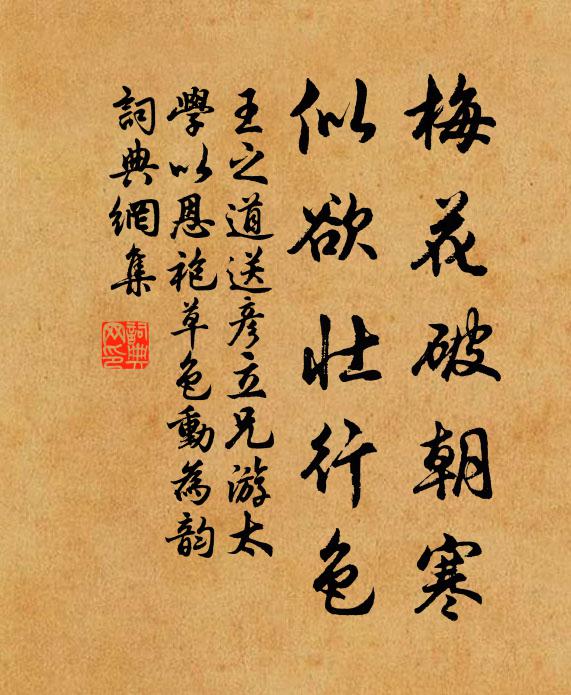 梅花破朝寒
似欲壮行色
王之道送彦立兄游太
學以恩袍草色動為韵
詞典網集
詞典网印